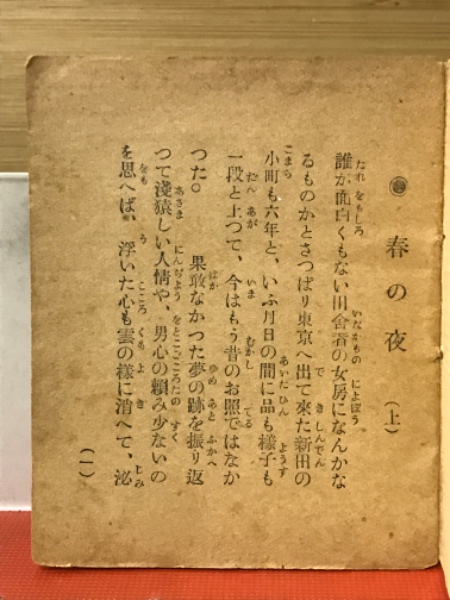 春の夜　（上）
誰が面白くもない田舍者の女房になんかな
るものかとさつぱり東京へ出て來た新田の
小町も六年と、いふ月日の間に品も樣子も
一段と上つて、今はもう昔のお照ではなか
つた。　果敢なかつた夢の跡を振り返
つて淺猿しい人情や、男心の頼み少ないの
を思へば、浮いた心も雲の樣に消へて、泌
（一）